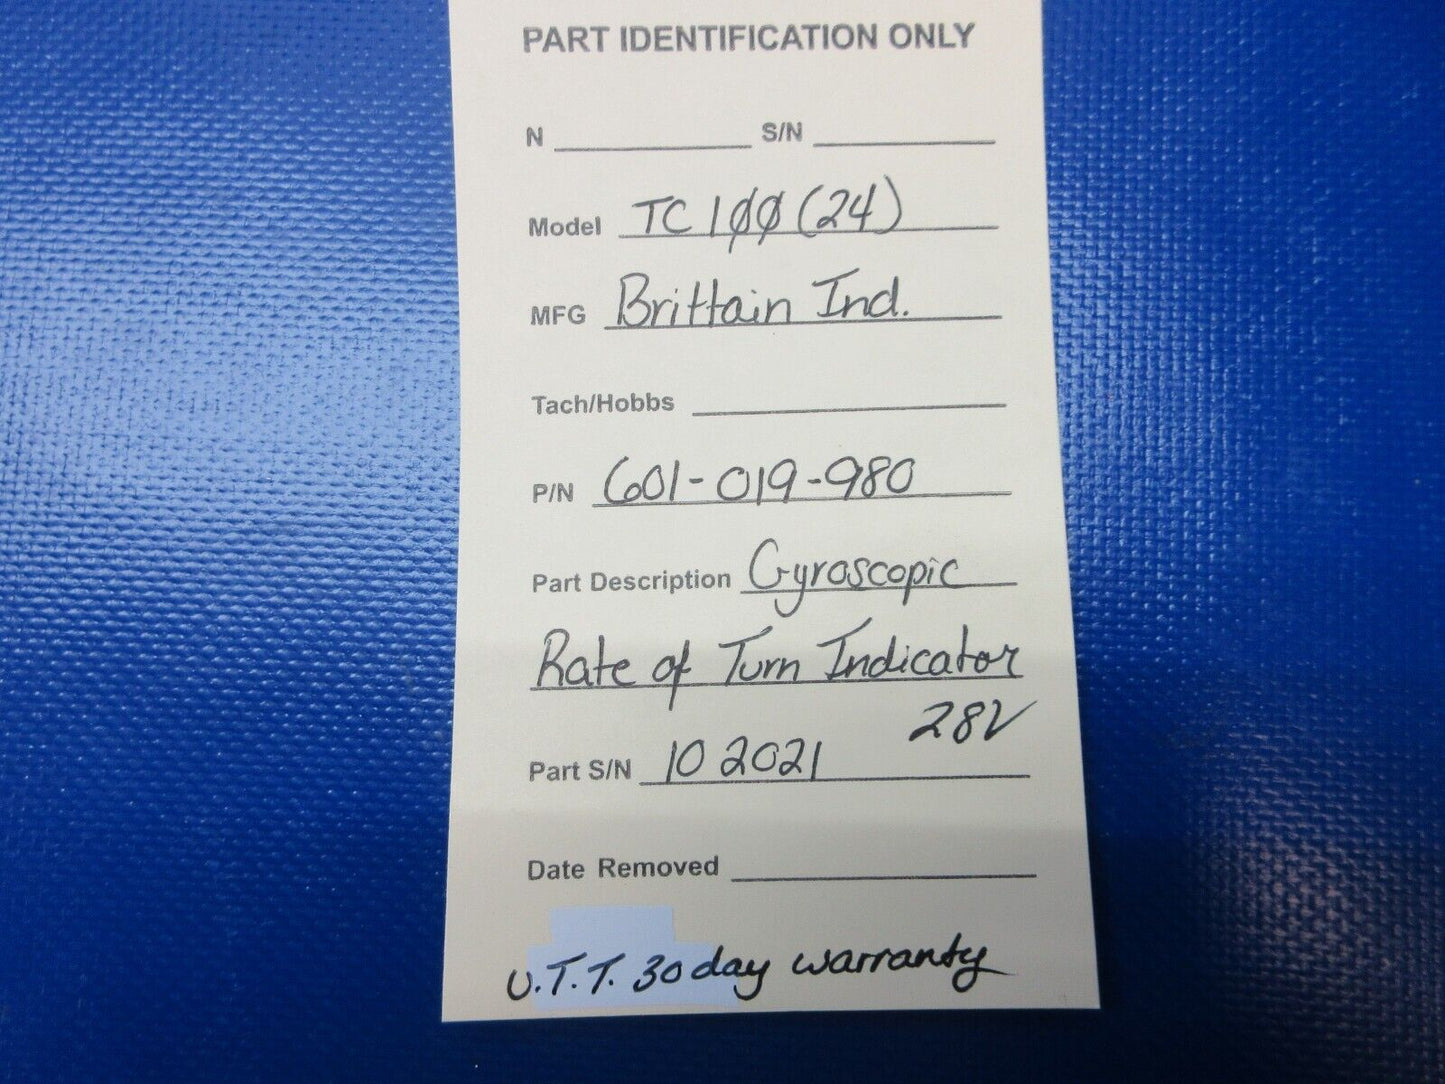 PART IDENTIFICATION ONLY
N ___ S/N ___
Model TC 100 (24)
MFG Brittain Ind.
Tach/Hobbs ___
P/N 601-019-980
Part Description Gyroscopic
Rate of Turn Indicator
28V
Part S/N 10 2021
Date Removed ___
U.T.T. 30 day warranty